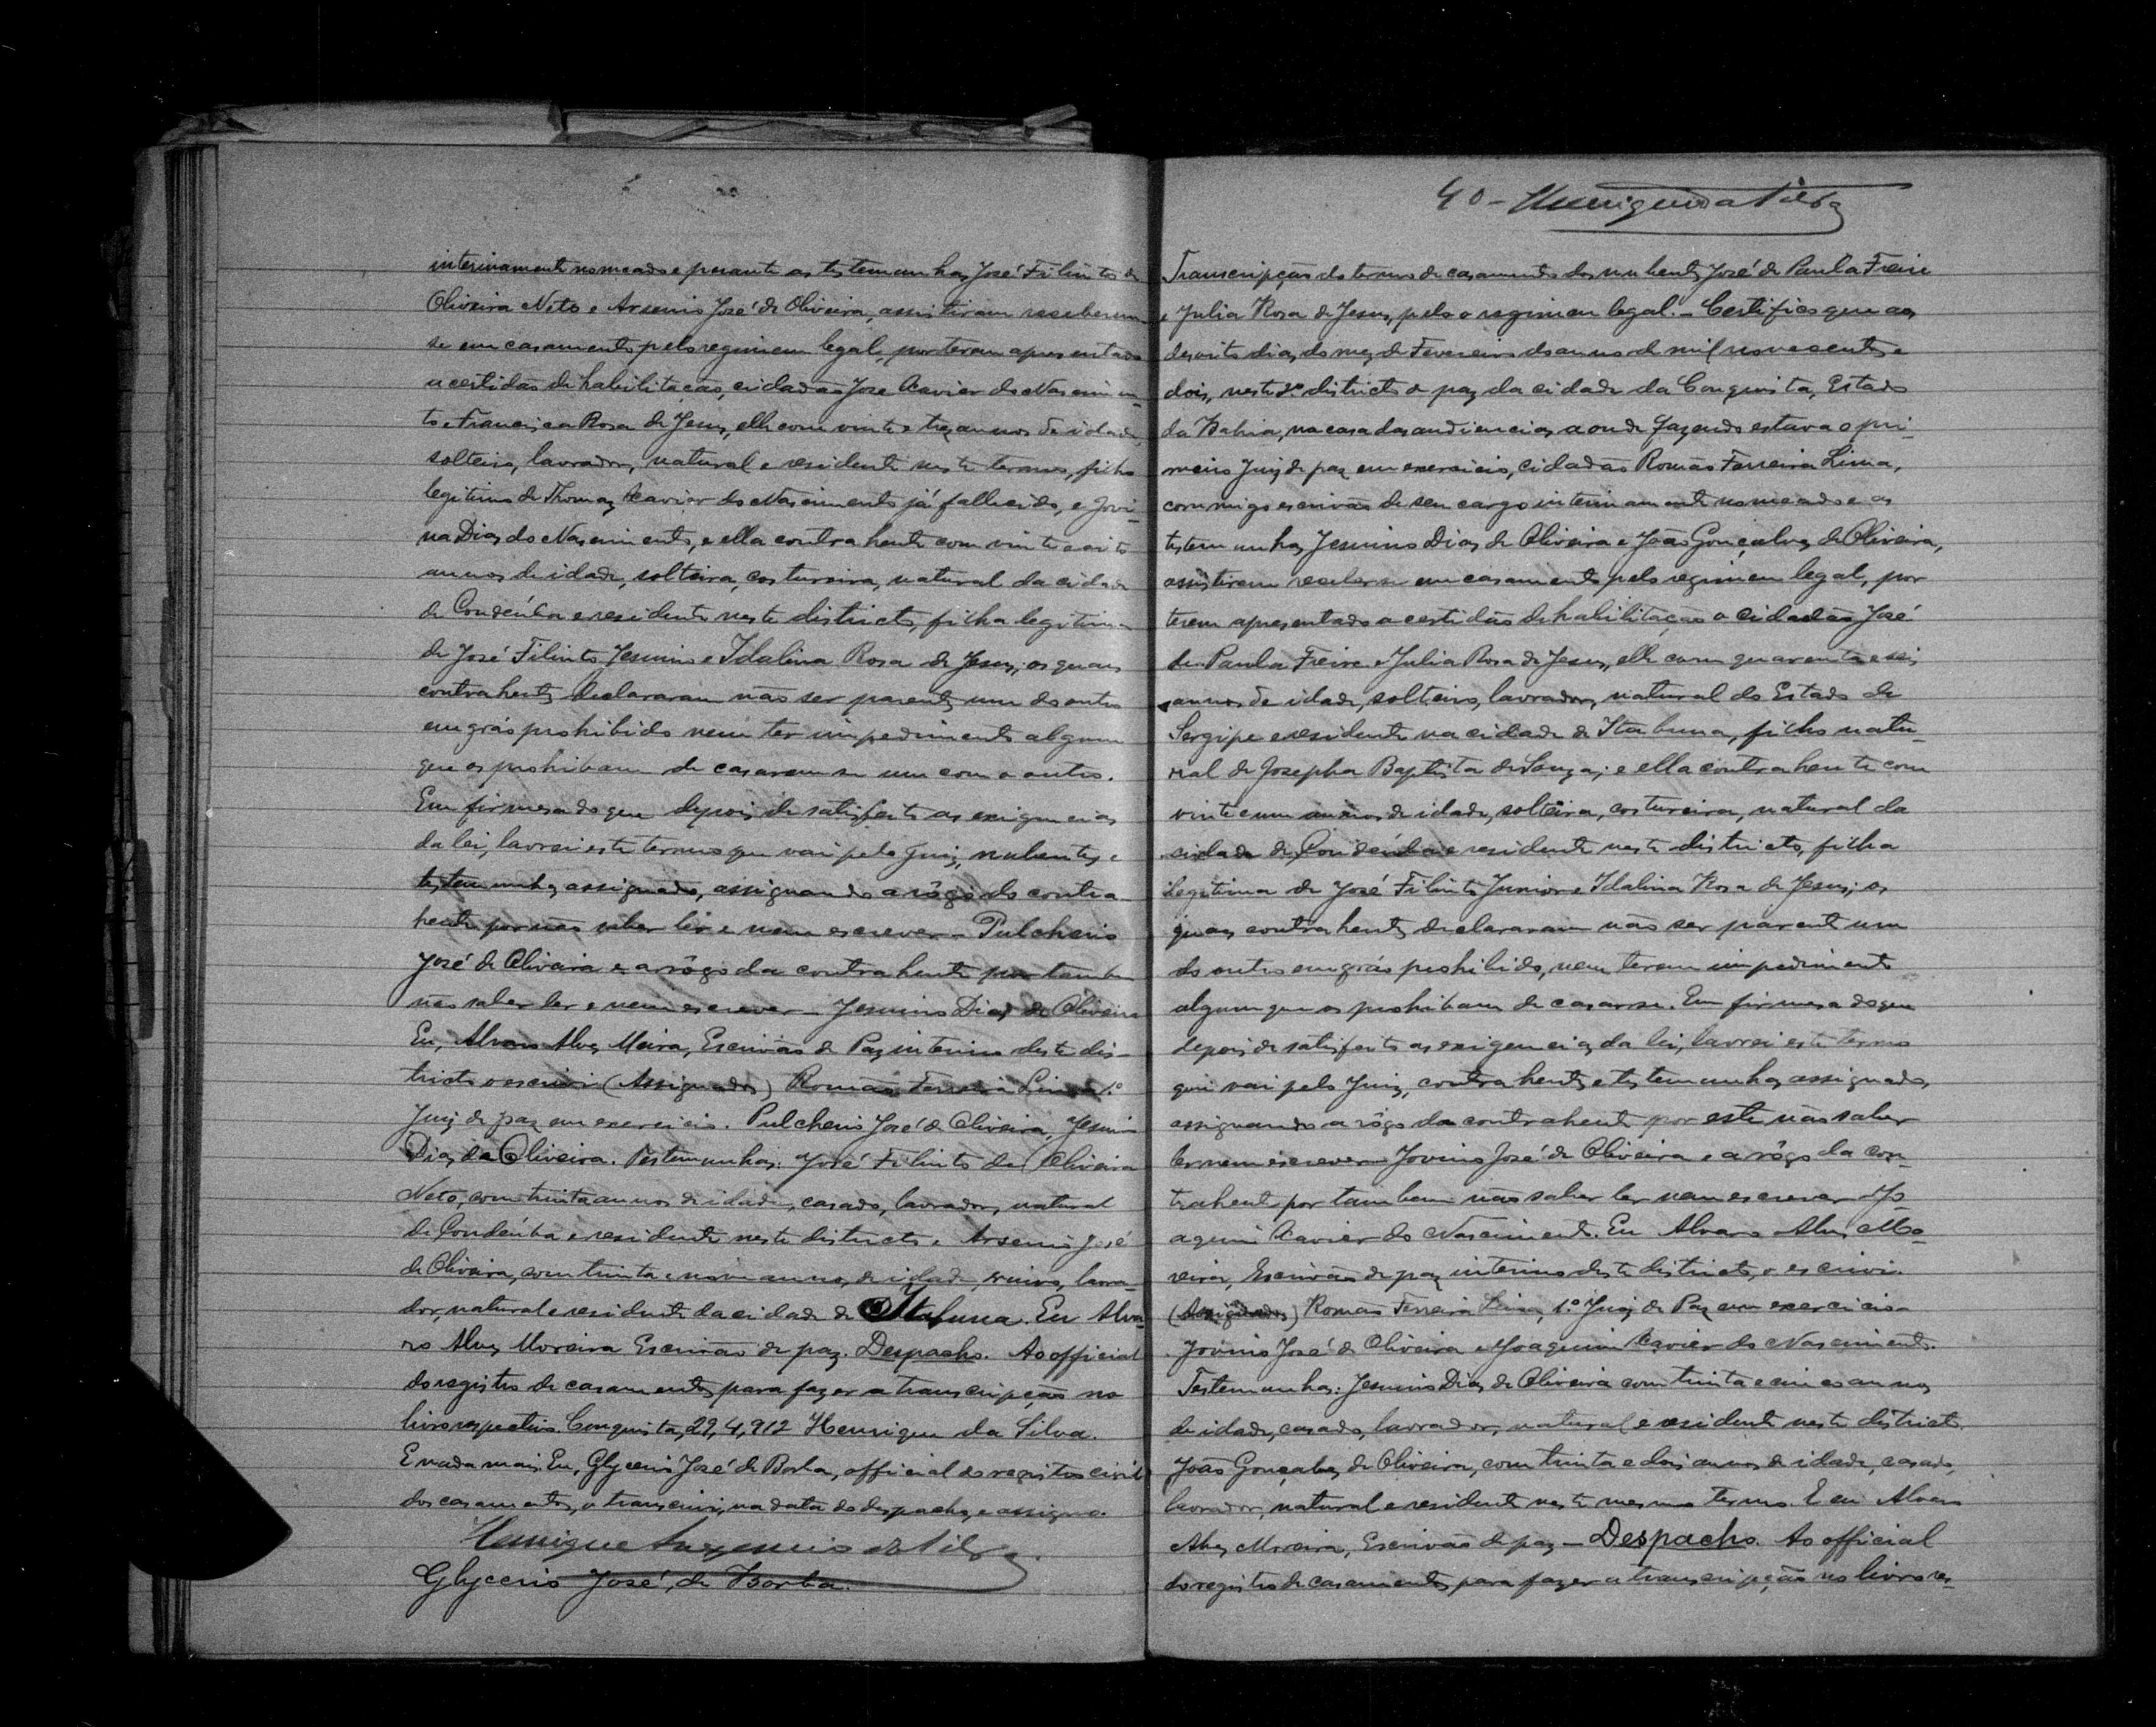 interinamente nomeado e perante as testemunhas José Filinto de
Oliveira Neto e Arsenio José de Oliveira, assistiram receberem-
se em casamento pelo regimem legal, por terem apresentado
a certidão de habilitação, cidadão José Xavier do Nascimen-
to e Francisca Rosa de Jesus, elle com vinte e tres annos de idade,
solteiro, lavrador, natural e residente neste termo, filho
legitimo de Thomaz Xavier do Nascimento já fallecido, e Jovi-
na Dias do Nascimento, e ella contrahente com vinte e oito
annos de idade, solteira, costureira, natural da cidade
de Condeúba e residente neste districto, filha legitima
de José Filinto Jesuino e Idalina Rosa de Jesus; os quaes
contrahentes declararam não ser parentes um do outro
em gráo prohibido nem ter impedimento algum
que os prohibam de casarem se um com o outro.
Em firmesa do que depois de satisfeito as exigencias
da lei, lavrei este termo que vai pelo Juiz, nubentes e
testemunhas assignado, assignando a rôgo do contra-
hente por não saber ler e nem escrever - Pulcherio
José de Oliveira e a rôgo da contrahente por tambem
não saber ler e nem escrever - Jesuino Dias de Oliveira
Eu, Alvaro Alves Meira, Escrivão de Paz interino deste dis-
tricto o escrivi (Assignados) Romão Ferreira Lima 1.º
Juiz de paz em exercicio. Pulcherio José de Oliveira, Jesuino
Dias de Oliveira. Testemunhas: José Filinto de Oliveira
Neto, com trinta annos de idade, casado, lavrador, natural
de Condeúba e residente neste districto e Arsenio José
de Oliveira, com trinta e nove annos de idade, viuvo, lavra-
dor, natural e residente da cidade de Itabuna. Eu Alva-
ro Alves Moreira Escrivão de paz. Despacho. Ao official
do registro de casamentos para fazer a transcripção no
livro respectivo. Conquista, 29, 4, 912 Henrique da Silva.
E nada mais. Eu, Glycerio José de Borba, official do registro civil
dos casamentos, o transcrivi, na data do despacho, e assigno.
Henrique da Silva
Glycerio José, de Borba.
40 - Henrique da Silva
Transcripção do termo de casamento dos nubentes José de Paula Freire
e Julia Rosa de Jesus, pelo o regimem legal. - Certifico que aos
desoito dias do mez de Fevereiro do anno de mil novecentos e
dois, neste 2º districto de paz da cidade da Conquista, Estado
da Bahia, na casa das audiencias aonde fazendo estava o pri-
meiro Juiz de paz em exercicio, cidadão Romão Ferreira Lima,
commigo escrivão de seu cargo interinamente nomeado e as
testemunhas Jesuino Dias de Oliveira e João Gonçalves de Oliveira,
assistirem receberse em casamento pelo regimem legal, por
terem apresentado a certidão de habilitação o cidadão José
de Paula Freire e Julia Rosa de Jesus, elle com quarenta e seis
annos de idade, solteiro, lavrador, natural do Estado de
Sergipe e residente na cidade de Itabuna, filho natu-
ral de Josepha Baptista de Souza; e ella contrahente com
vinte e um annos de idade, solteira, costureira, natural da
cidade de Condeúba e residente neste districto, filha
legitima de José Filinto Junior e Idalina Rosa de Jesus; os
quaes contrahentes declararam não ser parente um
do outro em gráo prohibido, nem terem impedimento
algum que os prohibam de casarse. Em firmesa do que
depois de satisfeito as exigencias da lei, lavrei este termo
que vai pelo Juiz, contrahentes e testemunhas assignado,
assignando a rôgo do contrahente por este não saber
ler nem escrever Jovino José de Oliveira e a rôgo da con-
trahente por tambem não saber ler nem escrever Jo-
aquim Xavier do Nascimento. Eu Alvaro Alves Mo-
reira, Escrivão de paz interino deste districto, o escrivi.
(Assignados) Romão Ferreira Lima, 1.º Juiz de Paz em exercicio -
Jovino José de Oliveira e Joaquim Xavier do Nascimento.
Testemunhas: Jesuino Dias de Oliveira com trinta e cinco annos
de idade, casado, lavrador, natural e residente neste districto.
João Gonçalves de Oliveira, com trinta e dois annos de idade, casado,
lavrador, natural e residente neste mesmo termo. E eu Alvaro
Alves Moreira, Escrivão de paz - Despacho. Ao official
do registro de casamentos para fazer a transcripção no livro res-